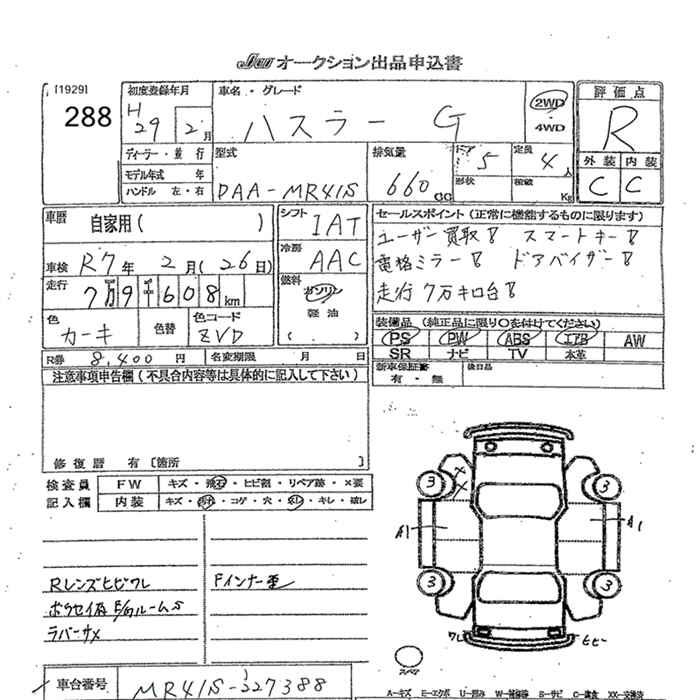 JU オークション出品申込書
[1929]
288
初度登録年月
H 29 2月
車名・グレード
ハスラー G
2WD
4WD
評価点
R
外装 内装
C C
ディーラー・並行
モデル年式 年
ハンドル 左・右
型式
DAA-MR41S
排気量
660 CC
ドア 5
形状
定員 4人
積載 Kg
車歴 自家用( )
車検 R7年 2月(26日)
走行 7万9千608km
色 カーキ
色替
色コード ZVD
シフト IAT
冷房 AAC
燃料
ガソリン
軽油
( )
R券 8,400円 名変期限 月 日
セールスポイント(正常に機能するものに限ります)
ユーザー買取!! スマートキー!!
電格ミラー!! ドアバイザー!!
走行7万キロ台!!
装備品 (純正品に限り〇を付けてください)
PS PW ABS エアB AW
SR ナビ TV 本革
新車保証書
有・無
後日品
注意事項申告欄(不具合内容等は具体的に記入して下さい)
修復歴 有〔箇所 〕
検査員 FW キズ・飛石・ヒビ割・リペア跡・×要
記入欄 内装 キズ・汚れ・コゲ・穴・・キレ・破レ
Rレンズヒビワレ Fインナー歪
ルームS
ラバーサメ
3 3
A1 A1
3 3
ワレ ヒビ
スペア
車台番号 MR41S-327388
A-キズ E-エクボ U-凹み W-補修跡 S-サビ C-腐食 XX-交換済